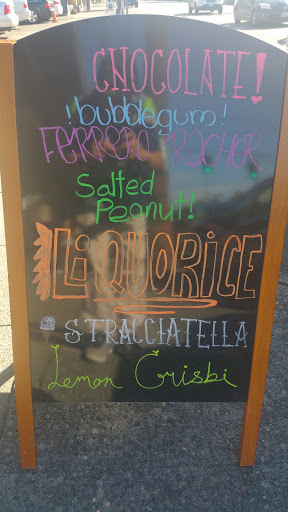 CHOCOLATE!
!bubblegum!
FERRERO ROCHER
Salted
Peanut!
LiQUORICE
STRACCIATELLA
Lemon Crisbi